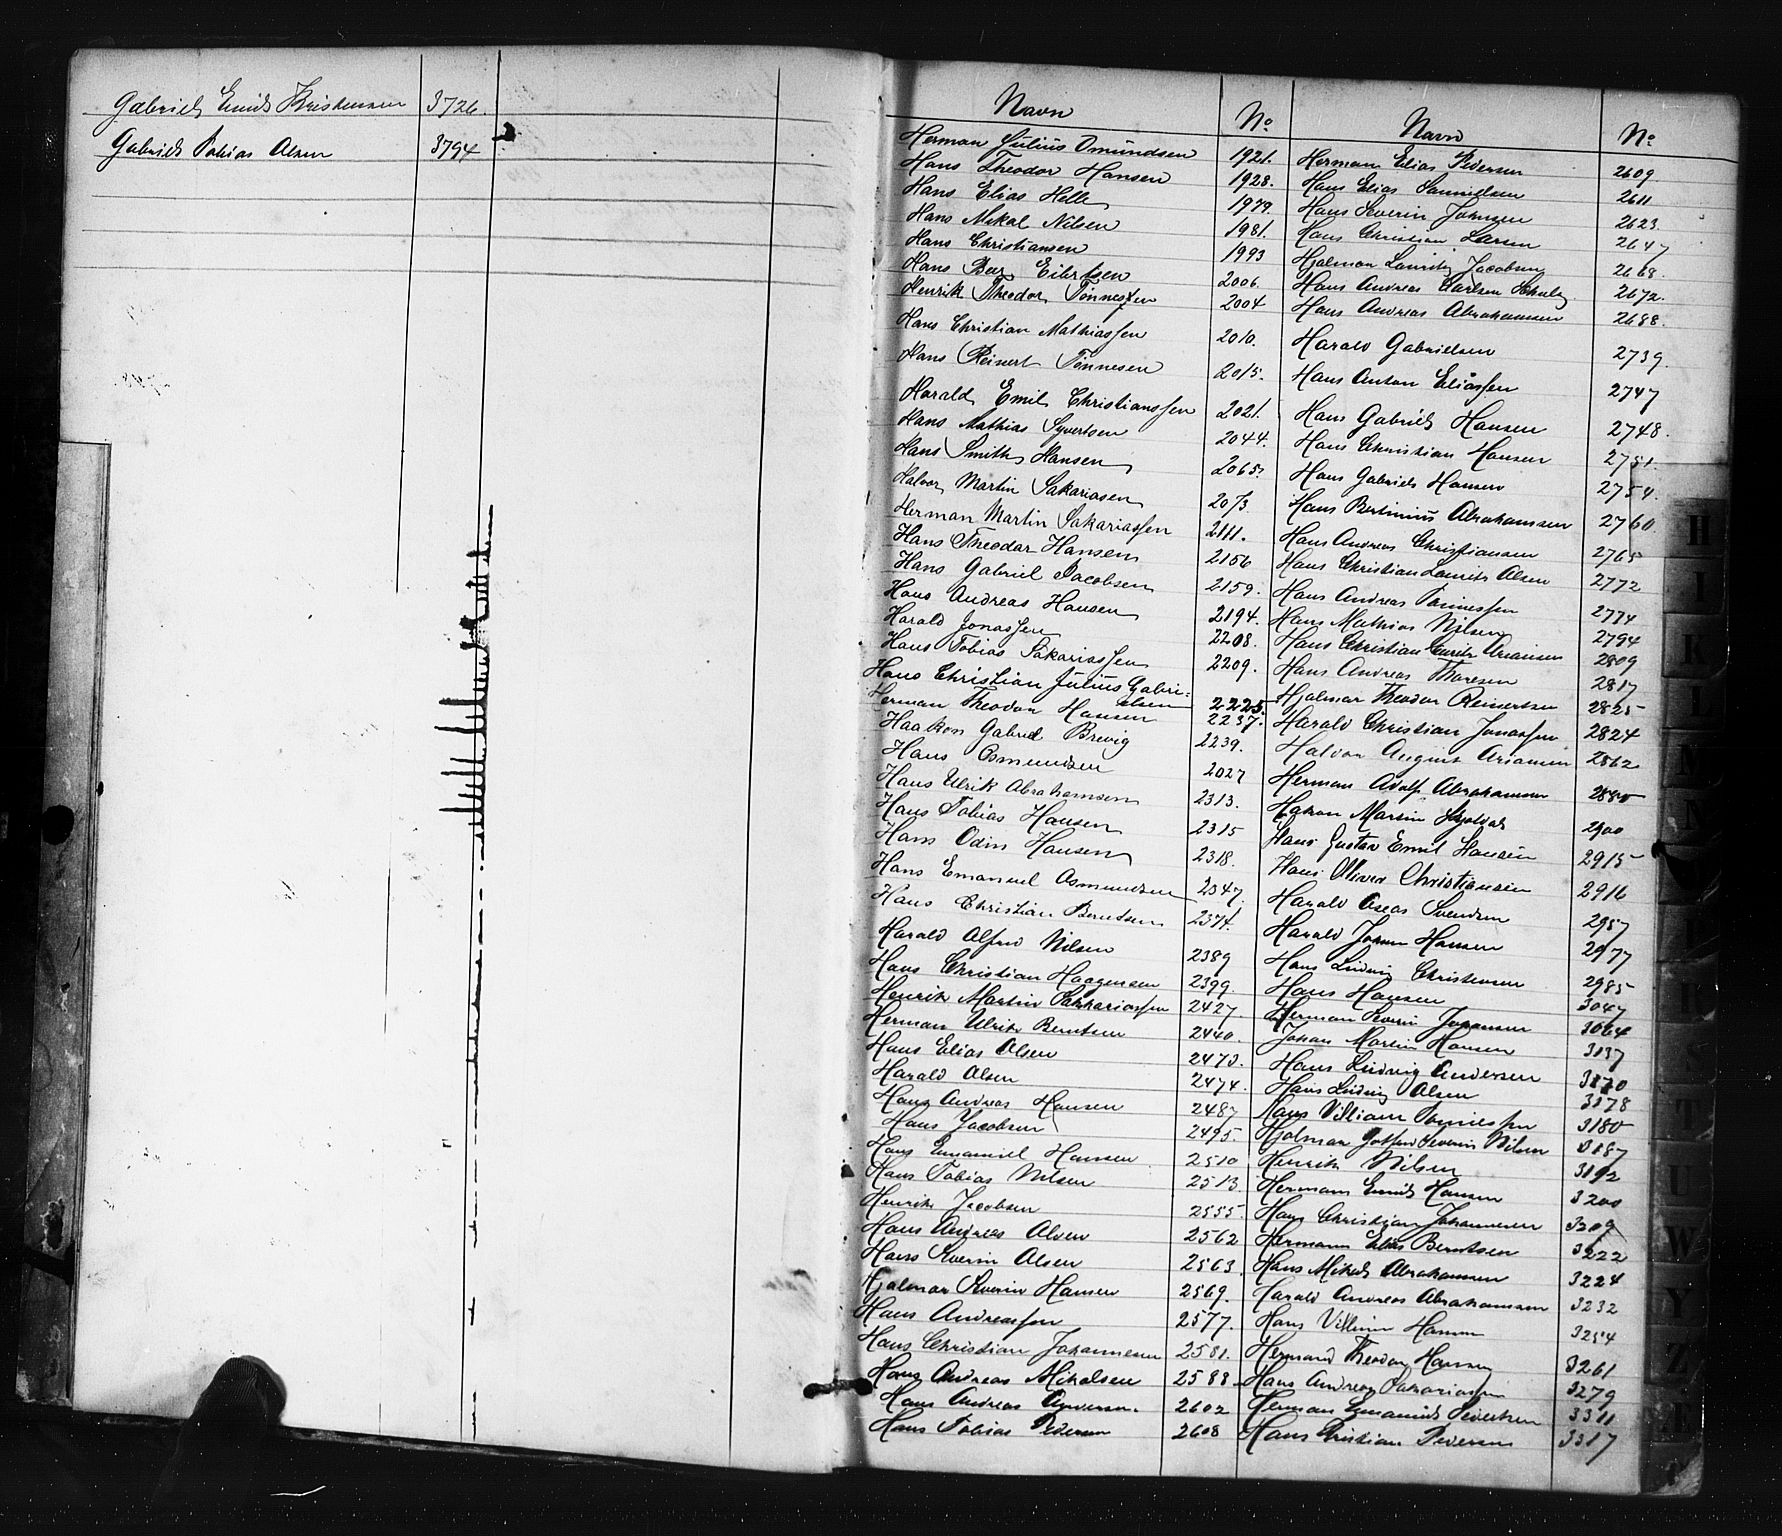 Gabriel Emil Kristensen 3726.
Gabriel Tobias Olsen 3794
Navn No
Herman Julius Omundsen 1921.
Hans Theodor Hansen 1928.
Hans Elias Helle 1979.
Hans Mikal Nilsen 1981.
Hans Christiansen 1993
Hans Eibertsen 2006.
Henrik Theodor Tønnessen 2004
Hans Christian Mathiassen 2010.
Hans Reinert Tønnesen 2015.
Harald Emil Christianssen 2021.
Hans Mathias Syvertsen 2044.
Hans Smith Hansen 2065.
Halvor Martin Sakariasen 2073.
Herman Martin Sakariassen 2111.
Hans Theodor Hansen 2156
Hans Gabriel Jacobsen 2159.
Hans Andreas Hansen 2194.
Harald Jonassen 2208.
Hans Tobias Sakariassen 2209.
Hans Christian Julius Gabri=
elsen 2225.
Herman Theodor Hansen 2237.
Haakon Gabriel Brevig 2239.
Hans Osmundsen 2027
Hans Ulrik Abrahamsen 2313.
Hans Tobias Hansen 2315
Hans Odin Hansen 2318.
Hans Emanuel Osmundsen 2347.
Hans Christian Berntsen 2374.
Harald Alfred Nilsen 2389
Hans Christian Haagensen 2399.
Henrik Martin Sakkariassen 2427.
Herman Ulrik Berntsen 2440.
Hans Elias Olsen 2473.
Harald Olsen 2474.
Hans Andreas Hansen 2487
Hans Jacobsen 2495.
Hans Emanuel Hansen 2510
Hans Tobias Nilsen 2513.
Henrik Jacobsen 2555.
Hans Andreas Olsen 2562
Hans Severin Olsen 2563.
Hjalmar Severin Hansen 2569.
Hans Andreassen 2577.
Hans Christian Johannesen 2581.
Hans Andreas Mikalsen 2588
Hans Andreas 2602
Hans Tobias Pedersen 2608
Navn No
Herman Elias Pedersen 2609
Hans Elias Samuelsen 2611
Hans Severin Johnsen 2623
Hans Christian Larsen 2647
Hjalmar Lauritz Jacobsen 2668.
Hans Andreas Carlsen 2672.
Hans Andreas Abrahamsen 2688.
Harald Gabrielsen 2739.
Hans Anton Eliassen 2747
Hans Gabriel Hansen 2748.
Hans Christian Hansen 2751.
Hans Gabriel Hansen 2754.
Hans Bertinius Abrahamsen 2760
Hans Andreas Christiansen 2765
Hans Christian Laurits Olsen 2772
Hans Andreas Tønnessen 2774
Hans Mathias Nilsen 2794
Hans Christian Ariansen 2809
Hans Andreas Thoresen 2817
Hjalmar Theodor Reinertsen 2825
Harald Christian Jonassen 2824
Halvor August Ariansen 2862
Herman Adolf Abrahamsen 2880
Hakon Martin 2900
Hans Gustav Emil Hansen 2915
Hans Oliver Christiansen 2916
Harald Oscar Svendsen 2957
Harald Johan Hansen 2977
Hans Ludvig Christensen 2985
Hans Hansen 3047
Herman Severin Johansen 3064
Johan Martin Hansen 3137
Hans Ludvig Andersen 3170
Hans Ludvig Olsen 3178
Hans Villiam Tønnessen 3180
Hjalmar Gotfred Severin Nilsen 3187
Henrik Nilsen 3192
Herman Emil Hansen 3200
Hans Christian Johannesen 3209
Hermann Elias Berntsen 3222
Hans Mikal Abrahamsen 3224
Harald Andreas Abrahamsen 3232
Hans Villiam Hansen 3254
Hermand Theodor Hansen 3261
Hans Andreas Sakariassen 3279
Herman Emanuel 3311
Hans Kristian Pedersen 3317
H
I
K
L
M
N
R
S
T
U
W
Y
Z
Æ